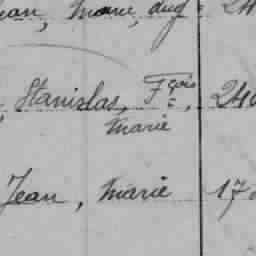 Jean, Marie, Aug 24
, Stanislas, Fçois, 240
Marie
Jean, Marie 17